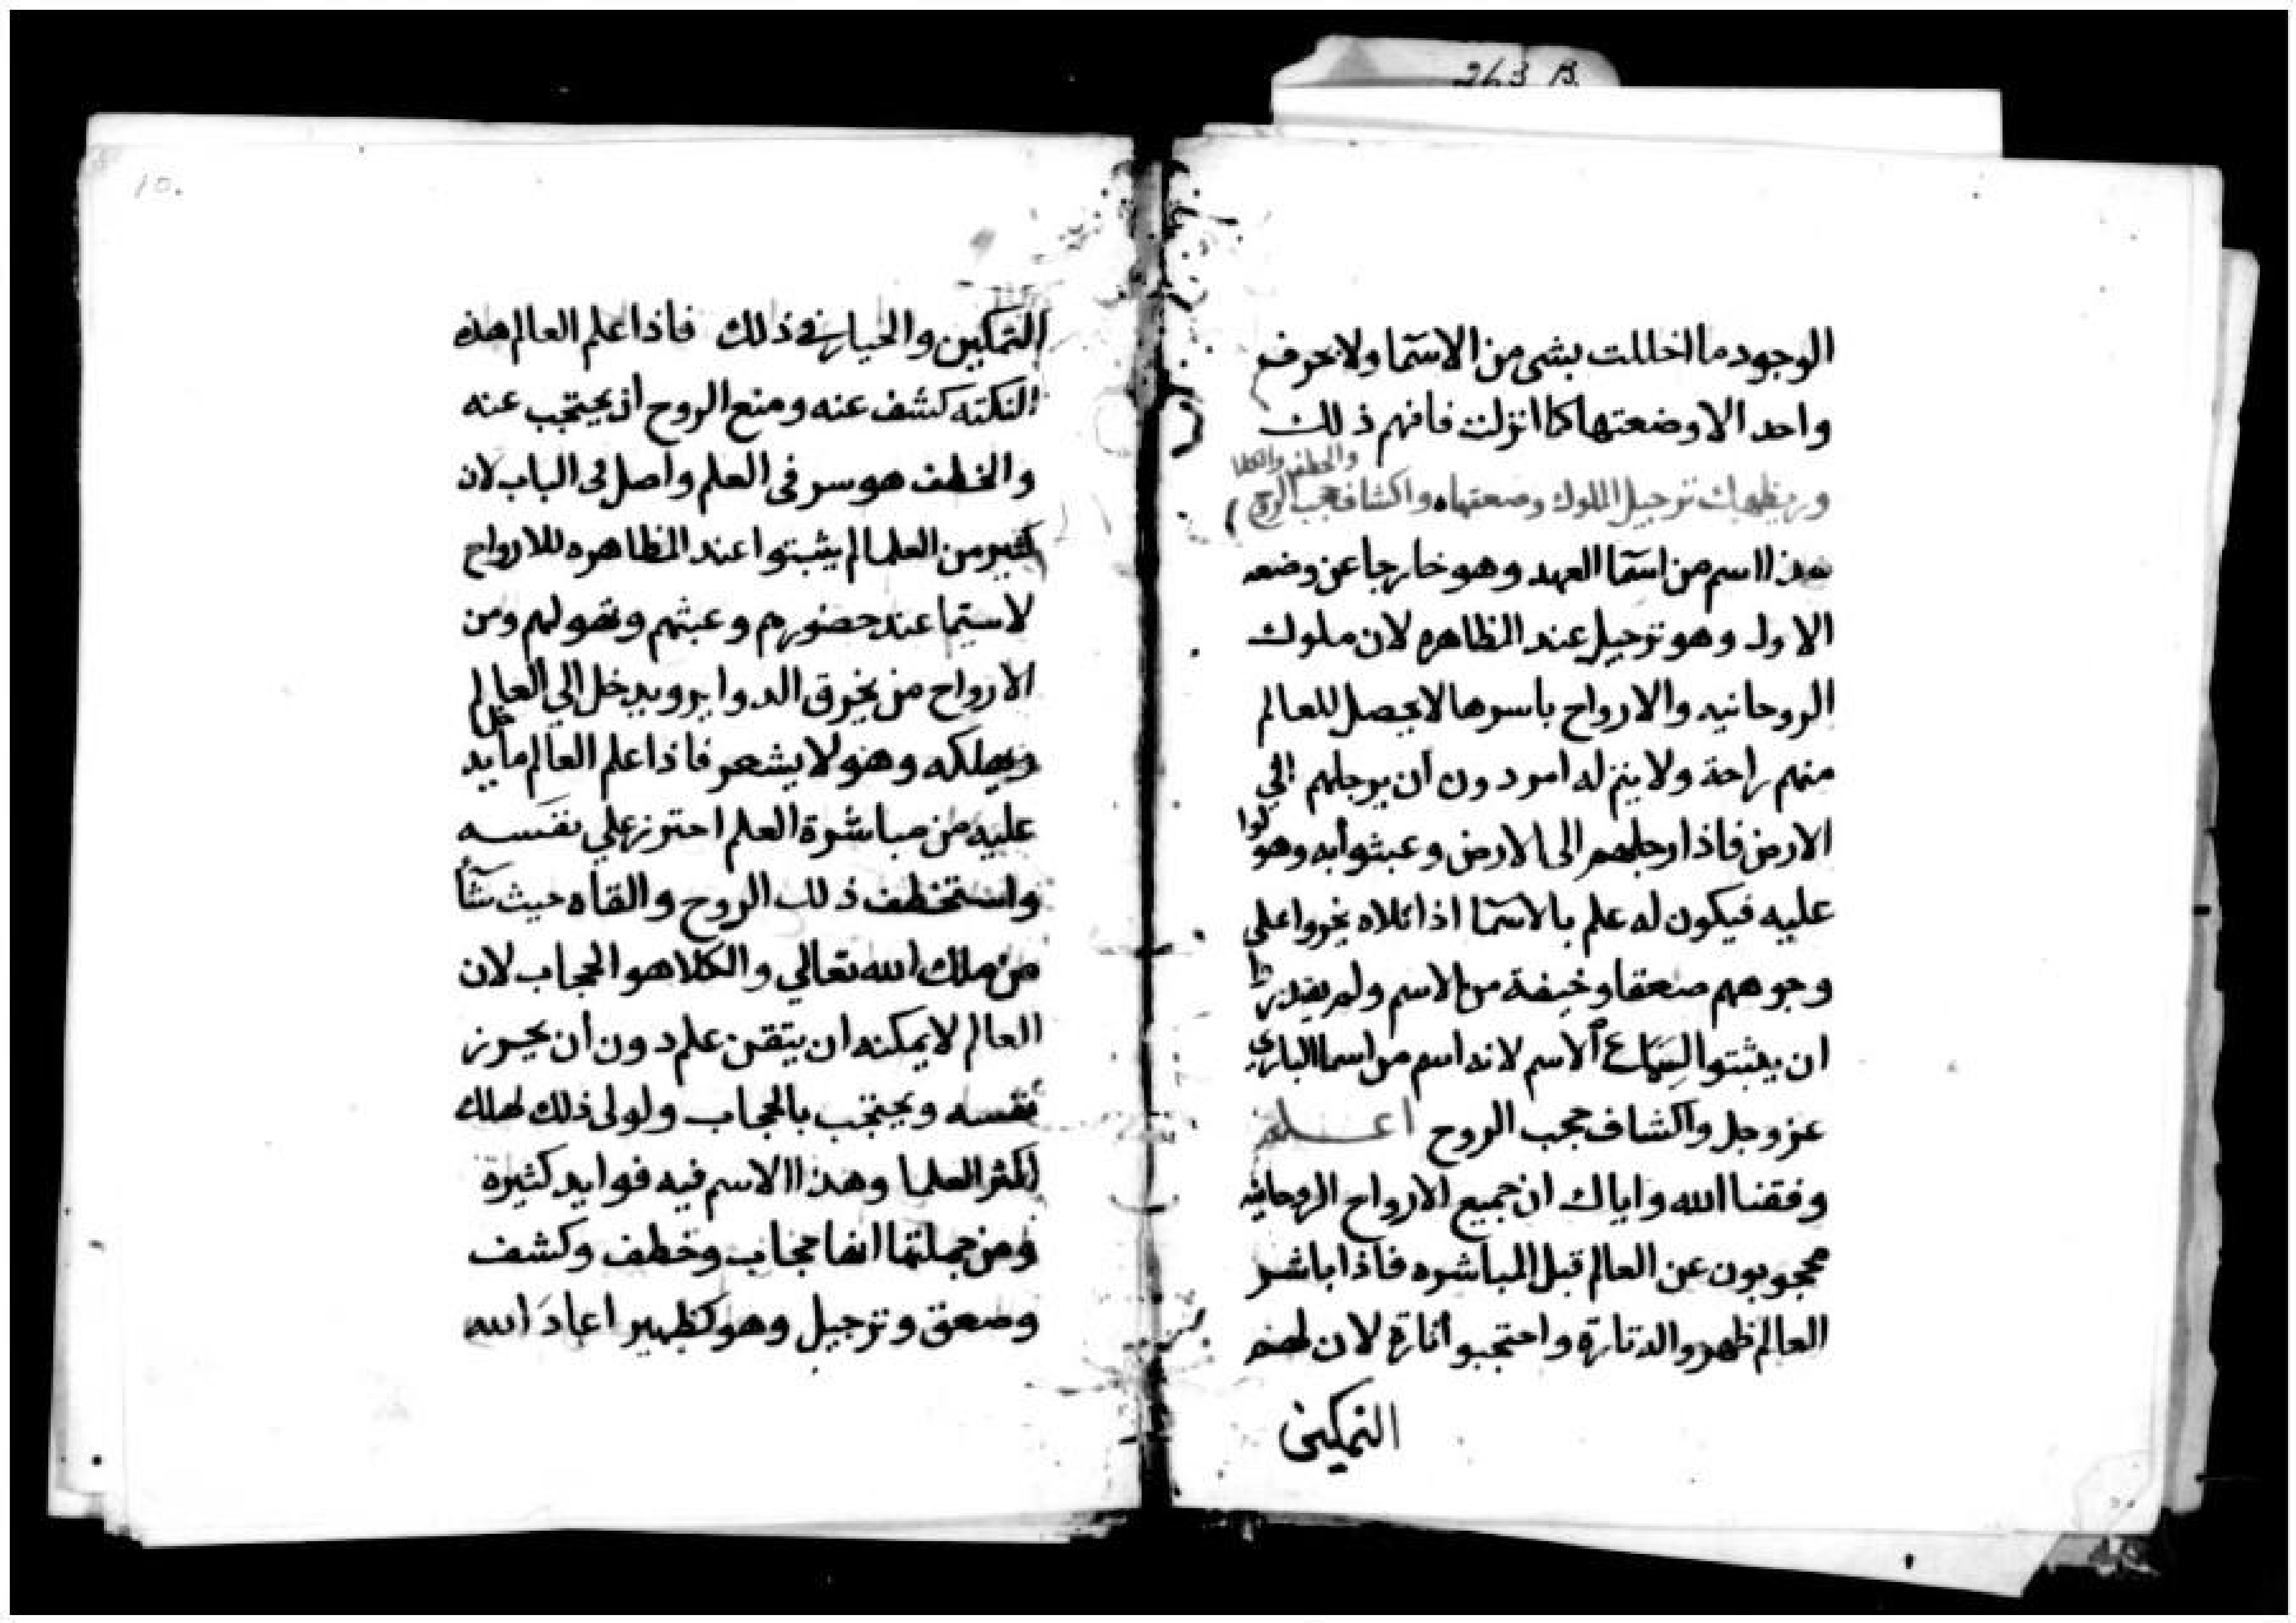 263 B.
الوجود ما اخللت بشى من الاسما ولا بحرف
واحد الا وضعتها كما انزلت فافهم ذلك
والخطف والكلا
ترجيل الملوك وصعقتها واكشاف حجب الروح
هذا اسم من اسما العهد وهو خارجا عن وضعه
الاول وهو ترجيل عند الظاهره لان ملوك
الروحانيه والارواح باسرها لا يحصل للعالم
منهم راحة ولا ينزله امر دون ان يرجلهم الي
الارض فاذا ارجلهم الى الارض وعبثوا به وهولوا
عليه فيكون له علم بالاسما اذا تلاه يخروا على
وجوههم صعقا وخيفة من الاسم ولم يقدروا
ان يثبتوا لسماع الاسم لانه اسم من اسما الباري
عز وجل واكشاف حجب الروح اعلم
وفقنا الله واياك ان جميع الارواح الروحانيه
محجوبون عن العالم قبل المباشره فاذا باشر
العالم ظهروا له تارة واحتجبوا تارة لان لهم
التمكين
10.
التمكين والخيار في ذلك فاذا علم العالم هذه
النكته كشف عنه ومنع الروح ان يحتجب عنه
والخطف هو سر فى العلم واصل فى الباب لان
كثير من العلما لم يثبتوا عند الظاهره للارواح
لاسيما عند حضورهم وعبثهم وتهولهم ومن
الارواح من يخرق الدواير ويدخل الي العالم
ويهلكه وهو لا يشعر فاذا علم العالم ما يدخل
عليه من مباشرة العلم احترز علي نفسه
واستخطف ذلك الروح والقاه حيث شآ
من ملك الله تعالي والكلا هو الحجاب لان
العالم لا يمكنه ان يتقن علم دون ان يحرز
نفسه ويحتجب بالحجاب ولولى ذلك لهلك
اكثر العلما وهذا الاسم فيه فوايد كثيرة
ومن جملتها انها حجاب وخطف وكشف
وصعق وترجيل وهو كظهير اعاد الله